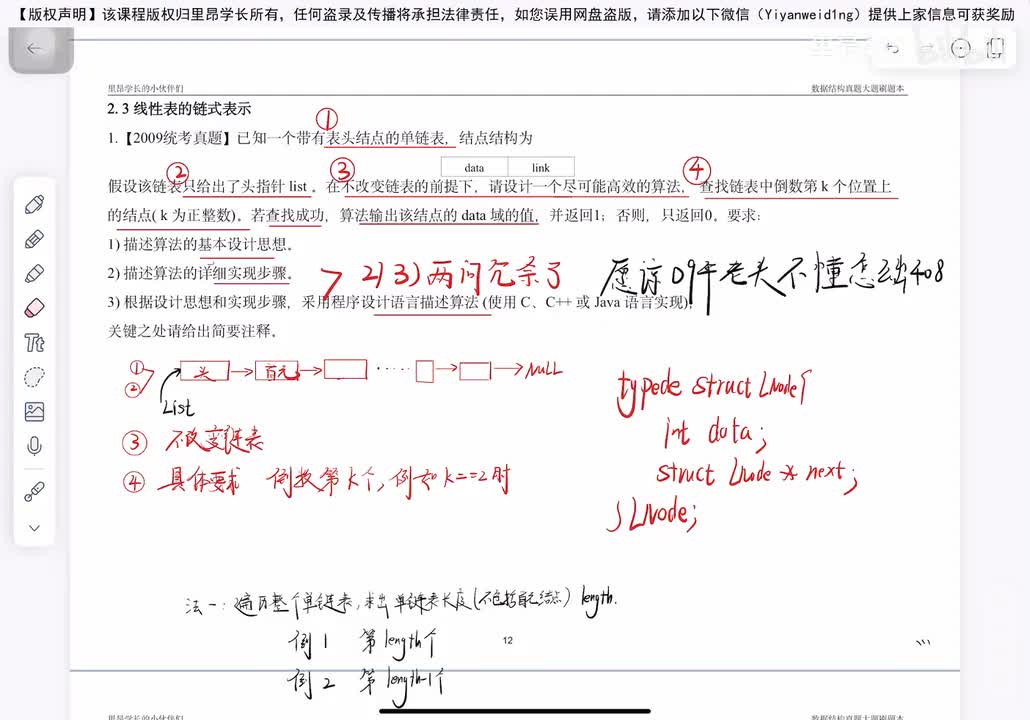 【版权声明】该课程版权归里昂学长所有，任何盗录及传播将承担法律责任，如您误用网盘盗版，请添加以下微信（Yiyanweid1ng）提供上家信息可获奖励
里昂学长的小伙伴们 数据结构真题大题刷题本
2.3 线性表的链式表示
①
1.【2009统考真题】已知一个带有表头结点的单链表，结点结构为
data link
② ③ ④
假设该链表只给出了头指针 list 。在不改变链表的前提下，请设计一个尽可能高效的算法，查找链表中倒数第 k 个位置上
的结点( k 为正整数)。若查找成功，算法输出该结点的 data 域的值，并返回1；否则，只返回0。要求：
1) 描述算法的基本设计思想。
2) 描述算法的详细实现步骤。
2(3)两问冗杂了 原谅09年老头不懂怎么出408
3) 根据设计思想和实现步骤，采用程序设计语言描述算法 (使用 C、C++ 或 Java 语言实现)，
关键之处请给出简要注释。
① ② 头 首元 ····· NULL
List
typede struct LNode{
int data;
③ 不改变链表
struct LNode * next;
④ 具体要求 倒数第k个，例如 k==2时
} LNode;
法一：遍历整个单链表，求出单链表长度(不包括首元结点) length.
例1 第length个
12
例2 第length-1个
里昂学长的小伙伴们 数据结构真题大题刷题本